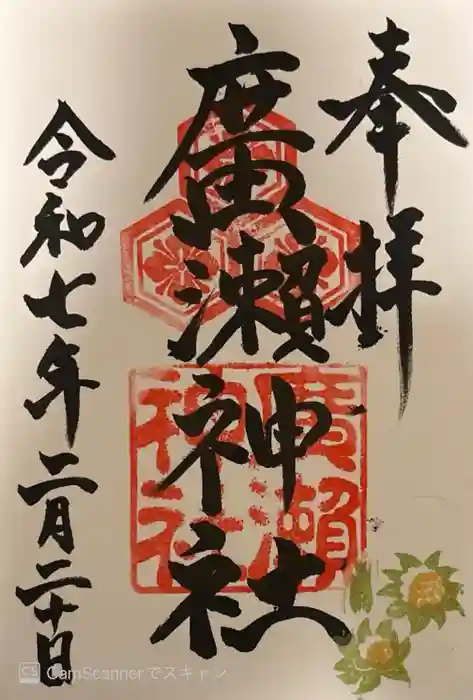 奉拝
廣瀬神社
廣瀬神社
令和七年二月二十日
CS CamScannerでスキャン